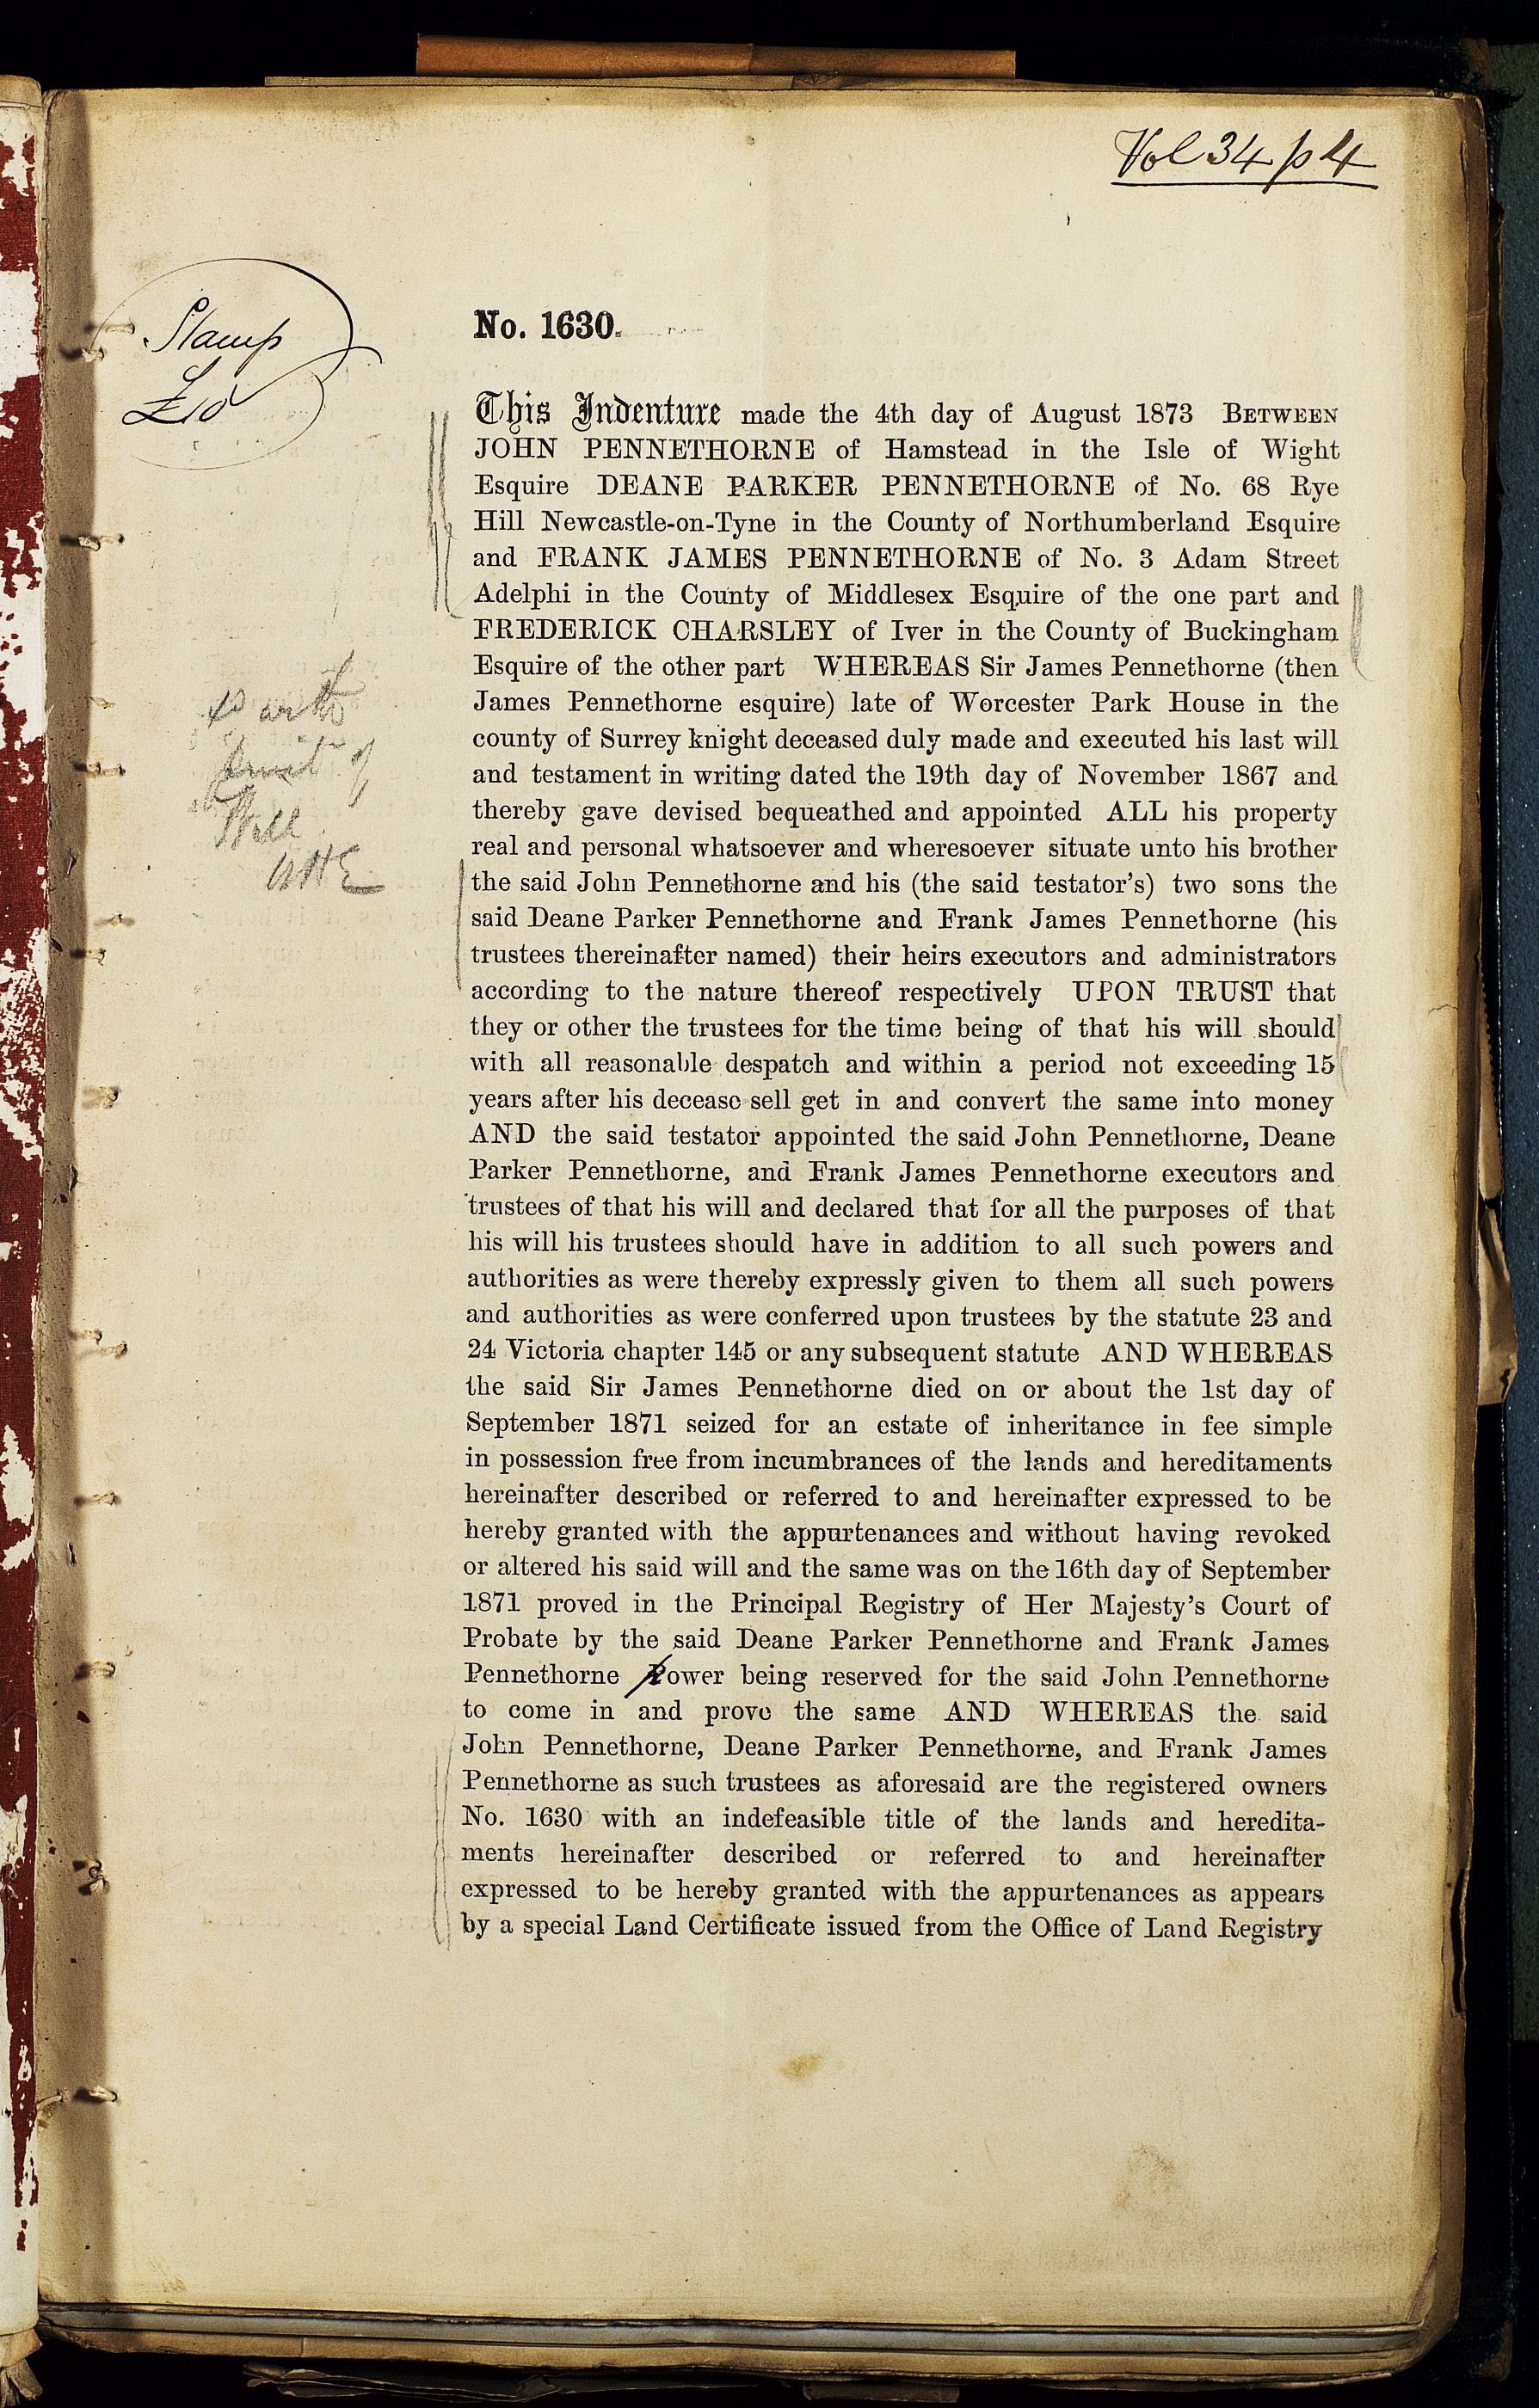 Vol 34 p 4
Stamp
£10
No. 1630.
This Indenture made the 4th day of August 1873 BETWEEN
JOHN PENNETHORNE of Hamstead in the Isle of Wight
Esquire DEANE PARKER PENNETHORNE of No. 68 Rye
Hill Newcastle-on-Tyne in the County of Northumberland Esquire
and FRANK JAMES PENNETHORNE of No. 3 Adam Street
Adelphi in the County of Middlesex Esquire of the one part and
FREDERICK CHARSLEY of Iver in the County of Buckingham
Esquire of the other part WHEREAS Sir James Pennethorne (then
James Pennethorne esquire) late of Worcester Park House in the
county of Surrey knight deceased duly made and executed his last will
and testament in writing dated the 19th day of November 1867 and
thereby gave devised bequeathed and appointed ALL his property
real and personal whatsoever and wheresoever situate unto his brother
the said John Pennethorne and his (the said testator's) two sons the
said Deane Parker Pennethorne and Frank James Pennethorne (his
trustees thereinafter named) their heirs executors and administrators
according to the nature thereof respectively UPON TRUST that
they or other the trustees for the time being of that his will should
with all reasonable despatch and within a period not exceeding 15
years after his decease sell get in and convert the same into money
AND the said testator appointed the said John Pennethorne, Deane
Parker Pennethorne, and Frank James Pennethorne executors and
trustees of that his will and declared that for all the purposes of that
his will his trustees should have in addition to all such powers and
authorities as were thereby expressly given to them all such powers
and authorities as were conferred upon trustees by the statute 23 and
24 Victoria chapter 145 or any subsequent statute AND WHEREAS
the said Sir James Pennethorne died on or about the 1st day of
September 1871 seized for an estate of inheritance in fee simple
in possession free from incumbrances of the lands and hereditaments
hereinafter described or referred to and hereinafter expressed to be
hereby granted with the appurtenances and without having revoked
or altered his said will and the same was on the 16th day of September
1871 proved in the Principal Registry of Her Majesty's Court of
Probate by the said Deane Parker Pennethorne and Frank James
Pennethorne power being reserved for the said John Pennethorne
to come in and prove the same AND WHEREAS the said
John Pennethorne, Deane Parker Pennethorne, and Frank James
Pennethorne as such trustees as aforesaid are the registered owners
No. 1630 with an indefeasible title of the lands and heredita-
ments hereinafter described or referred to and hereinafter
expressed to be hereby granted with the appurtenances as appears
by a special Land Certificate issued from the Office of Land Registry
of
Will